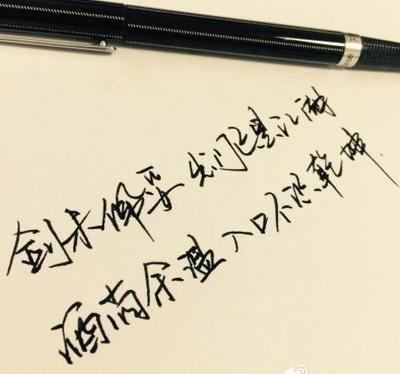 剑未佩妥 出门已是江湖
酒尚余温 入口不识乾坤